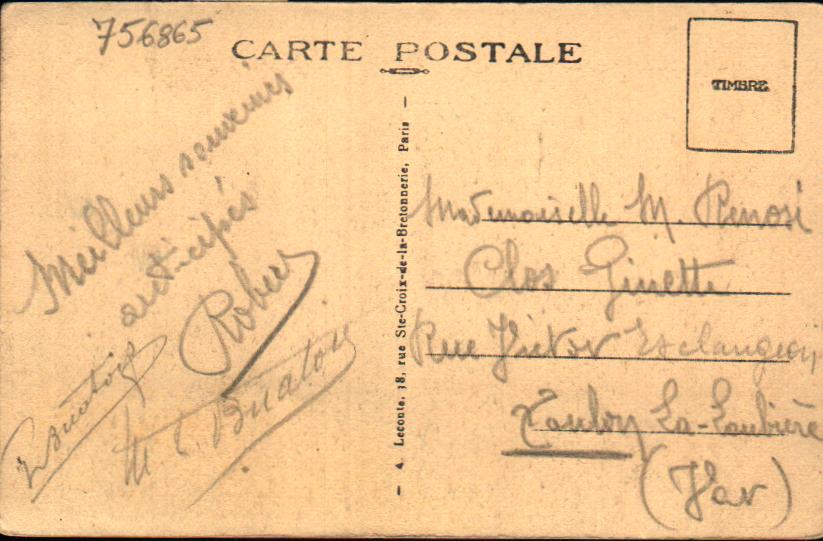 756865
CARTE POSTALE
TIMBRE
Meilleurs souvenirs
anticipés
Robert
Buatois
M. L. Buatois
A. Leconte, 38, rue Ste-Croix-de-la-Bretonnerie, Paris
Mademoiselle M. Renosi
Clos Ginette
Rue Victor Esclangon
Toulon La-Loubière
(Var)